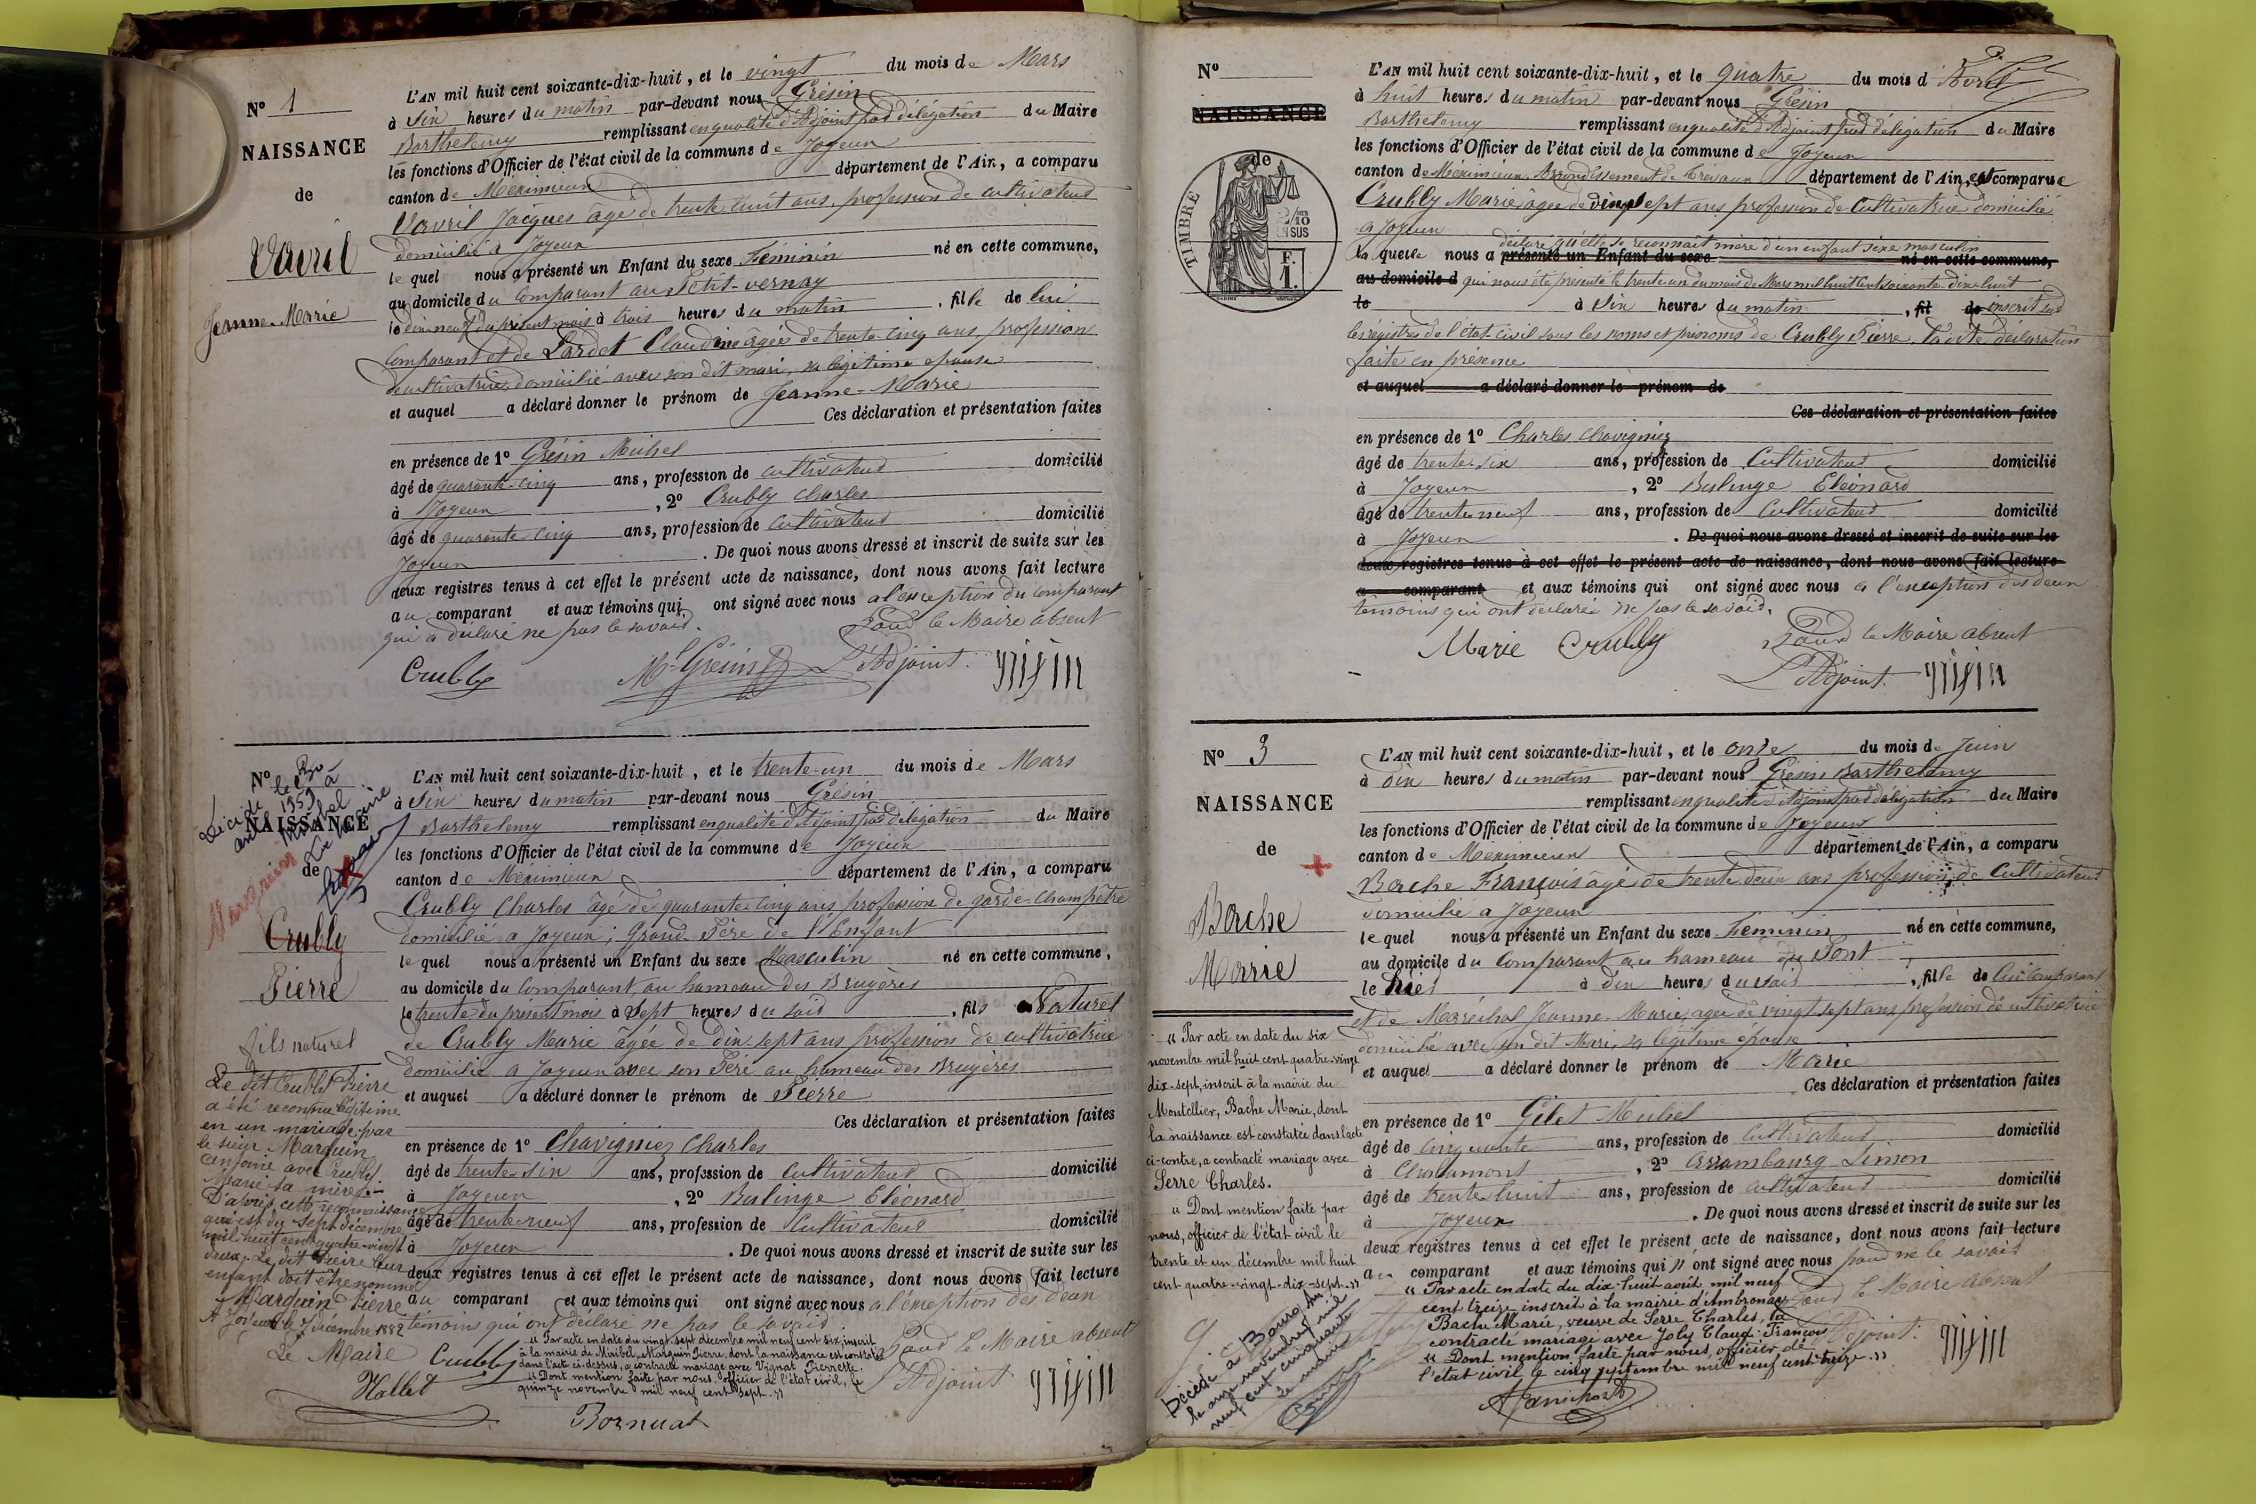 N° 1
NAISSANCE
de
Vavril
Jeanne-Marie
L'AN mil huit cent soixante-dix-huit, et le vingt du mois de Mars
à Six heures du matin par-devant nous Grésin
Barthelemy remplissant en qualité d'Adjoint par délégation du Maire
les fonctions d'Officier de l'état civil de la commune de Joyeux
canton de Meximieux département de l'Ain, a comparu
Vavril Jacques âgé de trente huit ans, profession de cultivateur
domicilié à Joyeux
lequel nous a présenté un Enfant du sexe Féminin né en cette commune,
au domicile du Comparant au Petit-vernay
le dix neuf du présent mois à trois heures du matin, fille de lui
comparant et de Lardet Claudine âgée de trente cinq ans, profession
de cultivatrice, domicilié avec son dit mari, sa légitime épouse
et auquel a déclaré donner le prénom de Jeanne-Marie
Ces déclaration et présentation faites
en présence de 1° Grésin Michel
âgé de quarante-cinq ans, profession de cultivateur domicilié
à Joyeux, 2° Crubly Charles
âgé de quarante cinq ans, profession de cultivateur domicilié
Joyeux. De quoi nous avons dressé et inscrit de suite sur les
deux registres tenus à cet effet le présent acte de naissance, dont nous avons fait lecture
au comparant et aux témoins qui ont signé avec nous a l'exception du comparant
qui a déclaré ne pas le savoir. Pour le Maire absent
Crubly M. Grésin L'Adjoint. grésin
N°
NAISSANCE
de
Crubly
Pierre
fils naturel
Décédé le
1959 à
Miribel
Le Maire
Marquin
Le dit Crubli Pierre
a été reconnu légitime
en un mariage par
le sieur Marquin
avec Crubly
Marie sa mère.
D'après cette reconnaissance
qui est du sept décembre
mil huit cent quatre-vingt
deux. Le dit Pierre leur
enfant doit être nommé
Marquin Pierre
A Joyeux le 7 décembre 1882
Le Maire
Hallet
L'AN mil huit cent soixante-dix-huit, et le trente-un du mois de Mars
à Six heures du matin par-devant nous Grésin
Barthelemy remplissant en qualité d'Adjoint par délégation du Maire
les fonctions d'Officier de l'état civil de la commune de Joyeux
canton de Meximieux département de l'Ain, a comparu
Crubly Charles âgé de quarante-cinq ans profession de garde-champêtre
domicilié a Joyeux, Grand Père de l'Enfant
lequel nous a présenté un Enfant du sexe Masculin né en cette commune,
au domicile du Comparant au hameau des Bruyères
le trente du present mois à sept heures du soir, fils Naturel
de Crubly Marie âgée de dix sept ans profession de cultivatrice
domicilié a Joyeux avec son Père au hameau des Bruyères
et auquel a déclaré donner le prénom de Pierre
Ces déclaration et présentation faites
en présence de 1° Chavigniez Charles
âgé de trente-six ans, profession de Cultivateur domicilié
à Joyeux, 2° Bulinge Eléonard
âgé de trente-neuf ans, profession de Cultivateur domicilié
à Joyeux. De quoi nous avons dressé et inscrit de suite sur les
deux registres tenus à cet effet le présent acte de naissance, dont nous avons fait lecture
au comparant et aux témoins qui ont signé avec nous a l'éxception des deux
témoins qui ont déclaré ne pas le savoir. Pour le Maire absent
Crubly L'Adjoint grésin
« Par acte en date du vingt-sept décembre mil neuf cent six, inscrit
à la mairie de Miribel, Marquin Pierre, dont la naissance est constatée
dans l'acte ci-dessus, a contracté mariage avec Vignat Pierrette.
« Dont mention faite par nous, officier de l'état civil, le
quinze novembre mil neuf cent sept. »
Bornuat
N°
NAISSANCE
de
TIMBRE
2/10
EN SUS
F.
1.
L'AN mil huit cent soixante-dix-huit, et le quatre du mois d'Avril
à huit heures du matin par-devant nous Grésin
Barthelemy remplissant en qualité d'Adjoint par délégation du Maire
les fonctions d'Officier de l'état civil de la commune de Joyeux
canton de Méximieux Arrondissement de Trévoux département de l'Ain, est comparue
Crubly Marie âgée de dix sept ans, profession de Cultivatrice domicilié
a Joyeux
déclaré qu'elle se reconnait mère d'un enfant séxe masculin
la quelle nous a présenté un Enfant du sexe né en cette commune,
au domicile d qui nous a été présenté le trente un du mois de Mars mil huit cent soixante-dix-huit
le à Six heures du matin, fil de inscrit sur
les régistres de l'état-civil sous les noms et prénoms de Crubly Pierre. La dite déclaration
faite en présence
et auquel a déclaré donner le prénom de
Ces déclaration et présentation faites
en présence de 1° Charles Chavigniez
âgé de trente-six ans, profession de Cultivateur domicilié
à Joyeux, 2° Bulinge Eleonard
âgé de trente neuf ans, profession de Cultivateur domicilié
à Joyeux. De quoi nous avons dressé et inscrit de suite sur les
deux registres tenus à cet effet le présent acte de naissance, dont nous avons fait lecture
a comparant et aux témoins qui ont signé avec nous a l'exception des deux
témoins qui ont déclaré ne pas le savoir.
Marie Crubly Pour le Maire absent
L'Adjoint. grésin
N° 3
NAISSANCE
de
Bache
Marie
« Par acte en date du six
novembre mil huit cent quatre-vingt
dix-sept, inscrit à la mairie du
Montellier, Bache Marie, dont
la naissance est constatée dans l'acte
ci-contre, a contracté mariage avec
Serre Charles.
« Dont mention faite par
nous, officier de l'état civil le
trente et un décembre mil huit
cent quatre-vingt-dix-sept. »
Décédée à Bourg
le onze novembre mil
neuf cent cinquante
Le maire
L'AN mil huit cent soixante-dix-huit, et le onze du mois de Juin
à dix heures du matin par-devant nous Grésin Barthelemy
remplissant en qualité d'Adjoint par délégation du Maire
les fonctions d'Officier de l'état civil de la commune de Joyeux
canton de Meximieux département de l'Ain, a comparu
Bache François âgé de trente deux ans profession de Cultivateur
domicilié a Joyeux
lequel nous a présenté un Enfant du sexe Féminin né en cette commune,
au domicile du Comparant au hameau du Pont
le hier à dix heures du soir, fille de lui comparant
et de Maréchal Jeanne-Marie, agée de vingt sept ans profession de cultivatrice
domicilié avec son dit Mari, sa légitime épouse
et auquel a déclaré donner le prénom de Marie
Ces déclaration et présentation faites
en présence de 1° Gilet Michel
âgé de cinquante ans, profession de Cultivateur domicilié
à Chalamont, 2° Arrambourg Simon
âgé de trente huit ans, profession de cultivateur domicilié
à Joyeux. De quoi nous avons dressé et inscrit de suite sur les
deux registres tenus à cet effet le présent acte de naissance, dont nous avons fait lecture
au comparant et aux témoins qui n'ont signé avec nous pour ne le savoir
Pour le Maire absent
L'Adjoint. grésin
« Par acte en date du dix-huit août mil neuf
cent treize inscrit à la mairie d'Ambronay
Bache Marie, veuve de Serre Charles, a
contracté mariage avec Joly Claude François
« Dont mention faite par nous, officier de
l'état civil le cinq septembre mil neuf cent treize. »